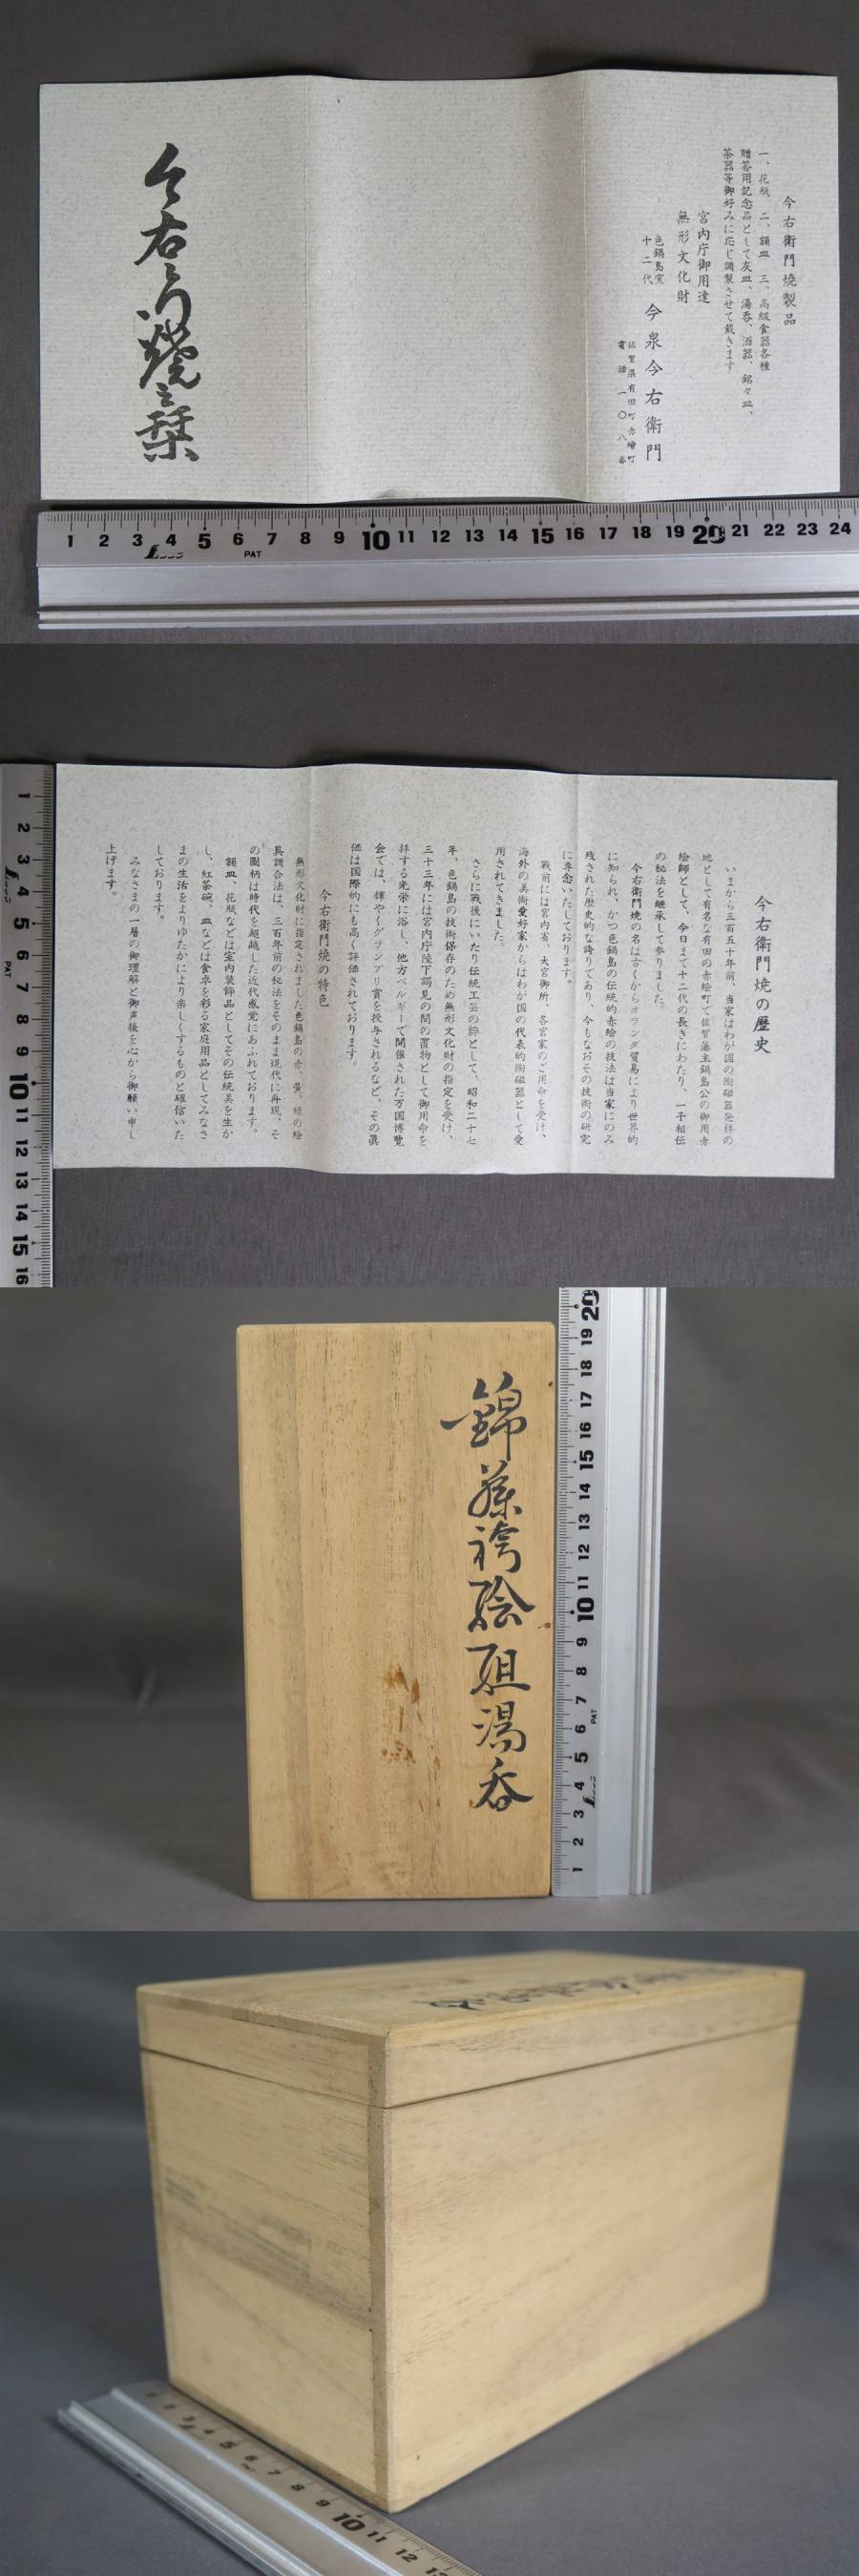 今右衛門焼製品
一、花瓶 二、額皿 三、高級食器各種
贈答用記念品として灰皿、湯呑、酒器、銘々皿、
茶器等御好みに応じ調製させて戴きます
宮内庁御用達
無形文化財
色鍋島窯
十二代
今泉今右衛門
佐賀県有田町赤繪町
電話 一〇八番
今右衛門燒之栞
1 2 3 4 5 6 7 8 9 10 11 12 13 14 15 16 17 18 19 20 21 22 23 24
PAT
今右衛門焼の歴史
いまから三百五十年前、当家はわが国の陶磁器発祥の
地として有名な有田の赤絵町で佐賀藩主鍋島公の御用赤
絵師として、今日まで十二代の長きにわたり、一子相伝
の秘法を継承して参りました。
今右衛門焼の名は古くからオランダ貿易により世界的
に知られ、かつ色鍋島の伝統的赤絵の技法は当家にのみ
残された歴史的な誇りであり、今もなおその技術の研究
に専念いたしております。
戦前には宮内省、大宮御所、各宮家のご用命を受け、
海外の美術愛好家からはわが国の代表的陶磁器として愛
用されてきました。
さらに戦後にいたり伝統工芸の粋として、昭和二十七
年、色鍋島の技術保存のため無形文化財の指定を受け、
三十三年には宮内庁陛下謁見の間の置物として御用命を
拝する光栄に浴し、他方ベルギーで開催された万国博覧
会では、輝やくグランプリ賞を授与されるなど、その眞
価は国際的にも高く評価されております。
今右衛門焼の特色
無形文化財に指定されました色鍋島の赤、黄、緑の絵
具調合法は、三百年前の秘法をそのまま現代に再現、そ
の圖柄は時代を超越した近代感覚にあふれております。
額皿、花瓶などは室内装飾品としてその伝統美を生か
し、紅茶碗、皿などは食卓を彩る家庭用品としてみなさ
まの生活をよりゆたかにより楽しくするものと確信いた
しております。
みなさまの一層の御理解と御声援を心から御願い申し
上げます。
1 2 3 4 5 6 7 8 9 10 11 12 13 14 15 16
PAT
錦藤袴絵組湯呑
20 19 18 17 16 15 14 13 12 11 10 9 8 7 6 5 4 3 2 1
PAT
3 4 5 6 7 8 9 10 11 12